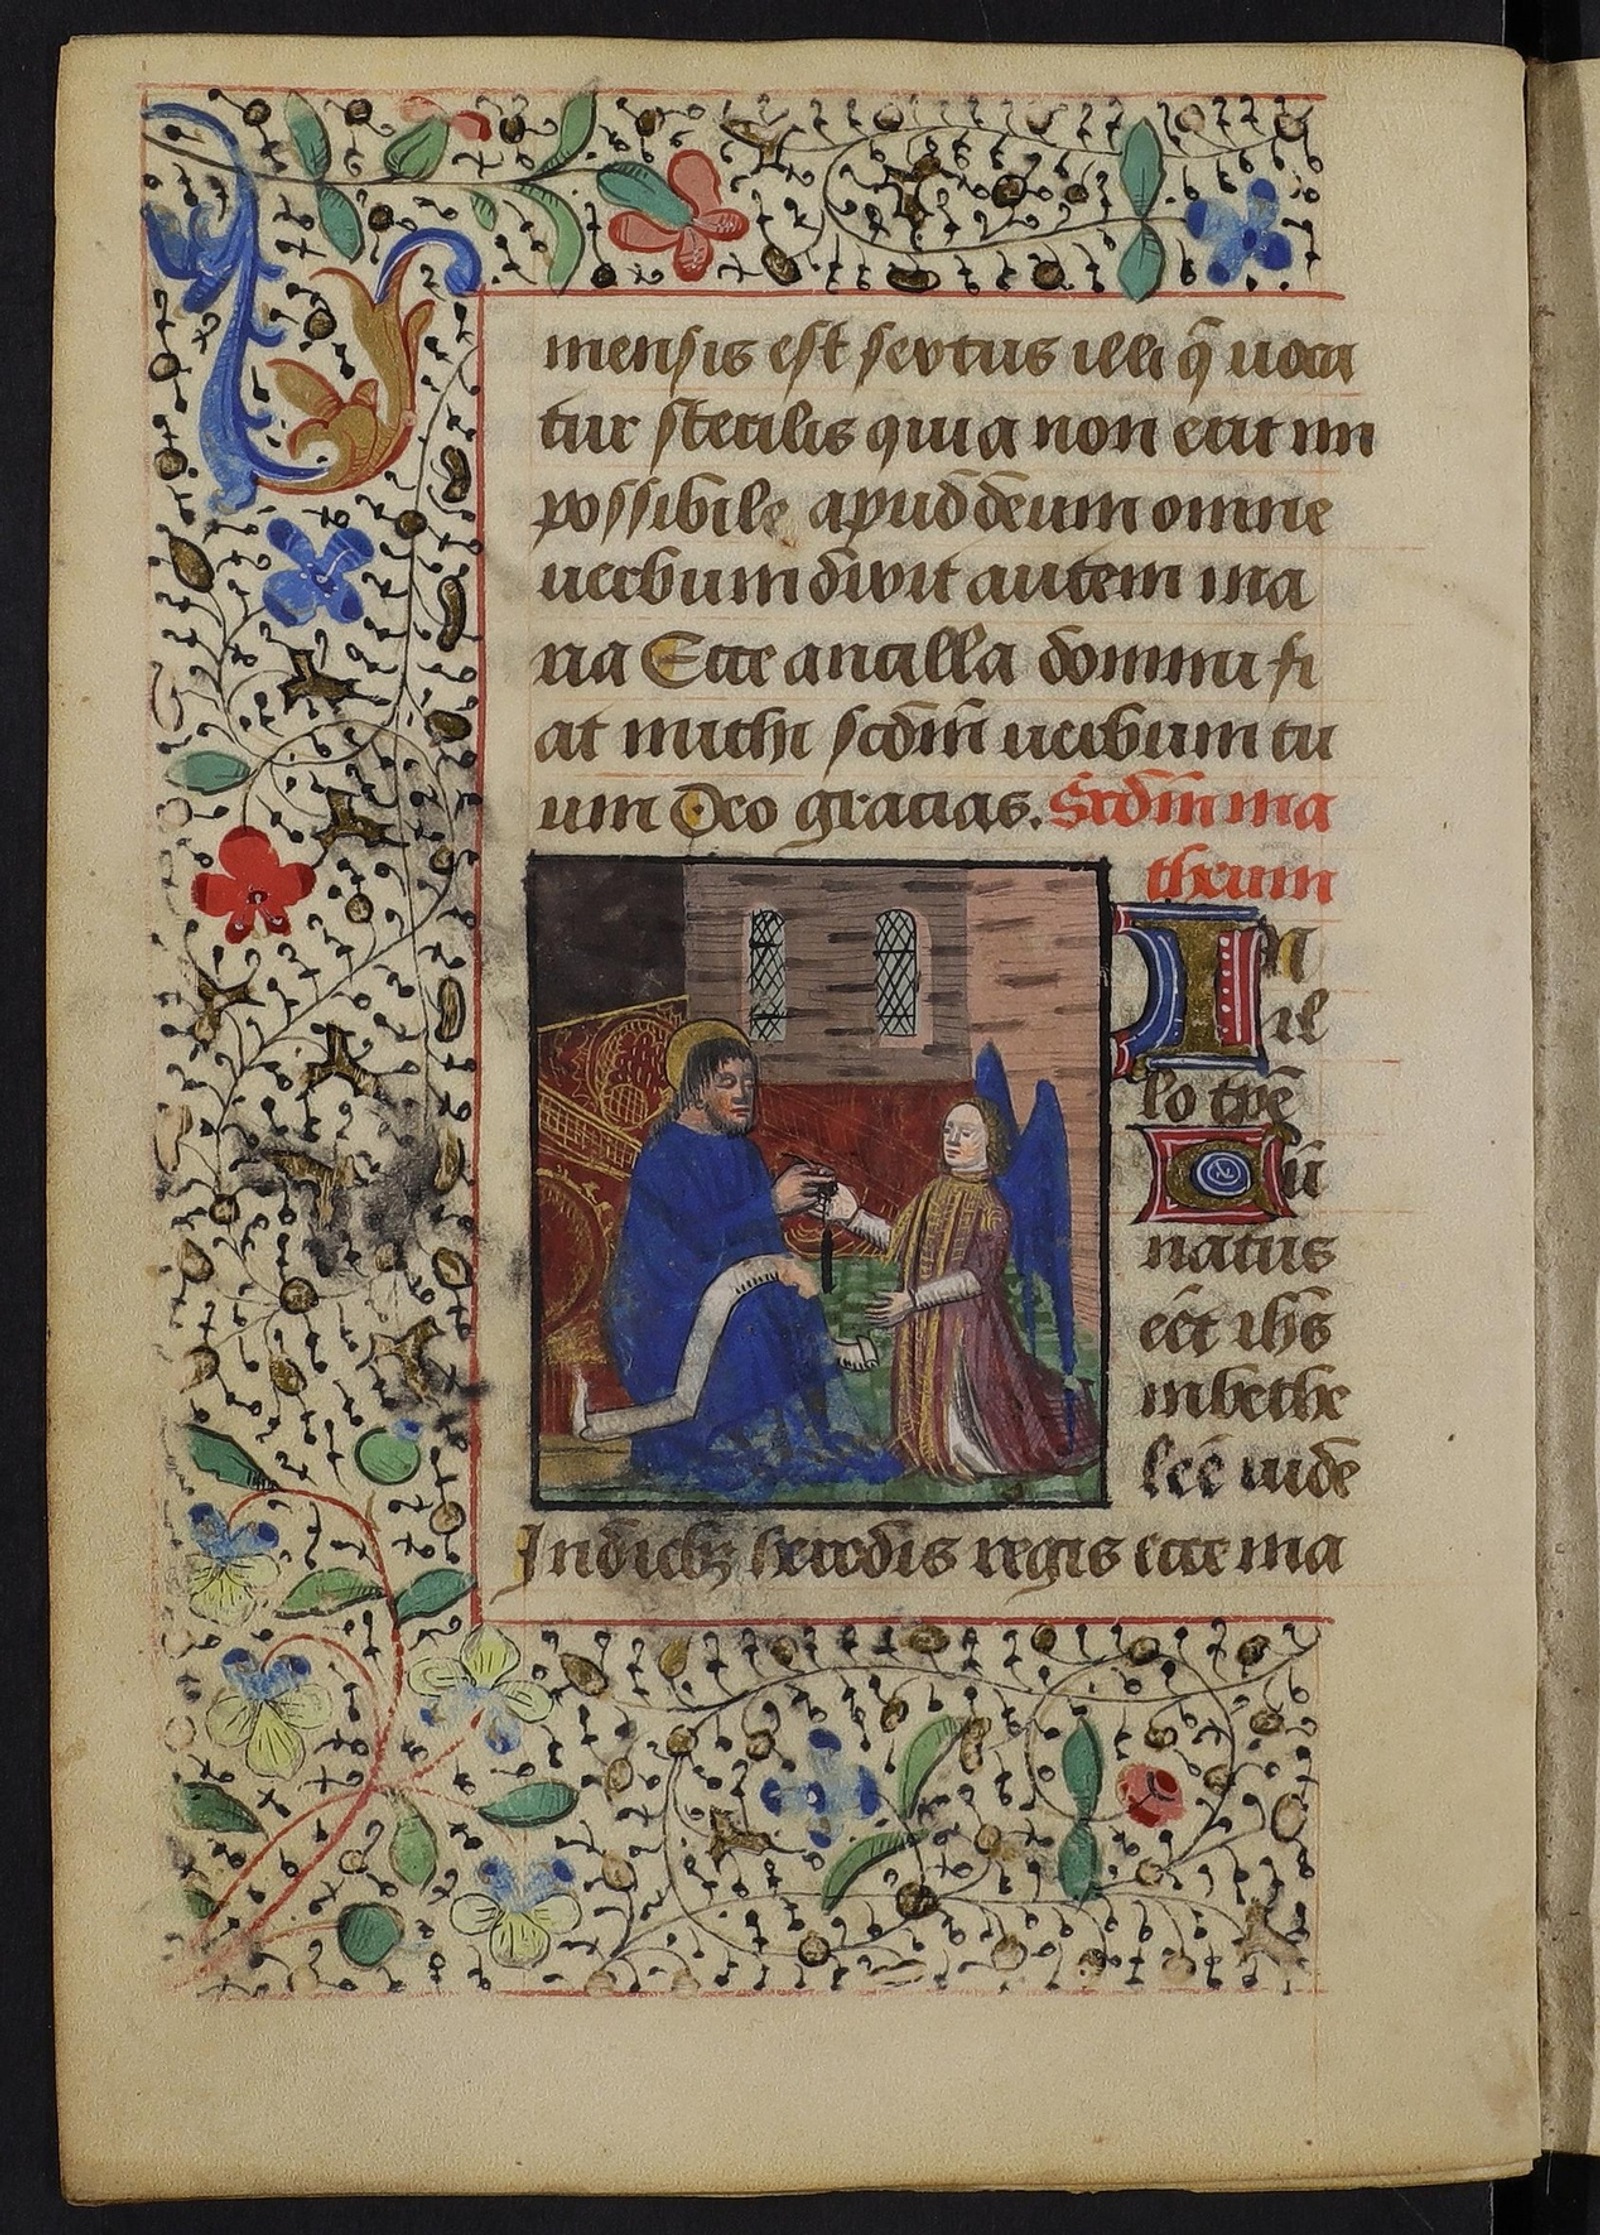 mensis est sextus illi q̄ uoca
tur sterilis quia non erit im
possibile apud deum omne
uerbum dixit autem ma
ria Ecce ancilla domini fi
at michi scdm̄ uerbum tu
um Deo gracias. Scdm̄ ma
theum
In
il
lo tp̄e
Cū
natus
eēt ihs̄
in bethe
leē iude
In diebꝫ herodis regis ecce ma